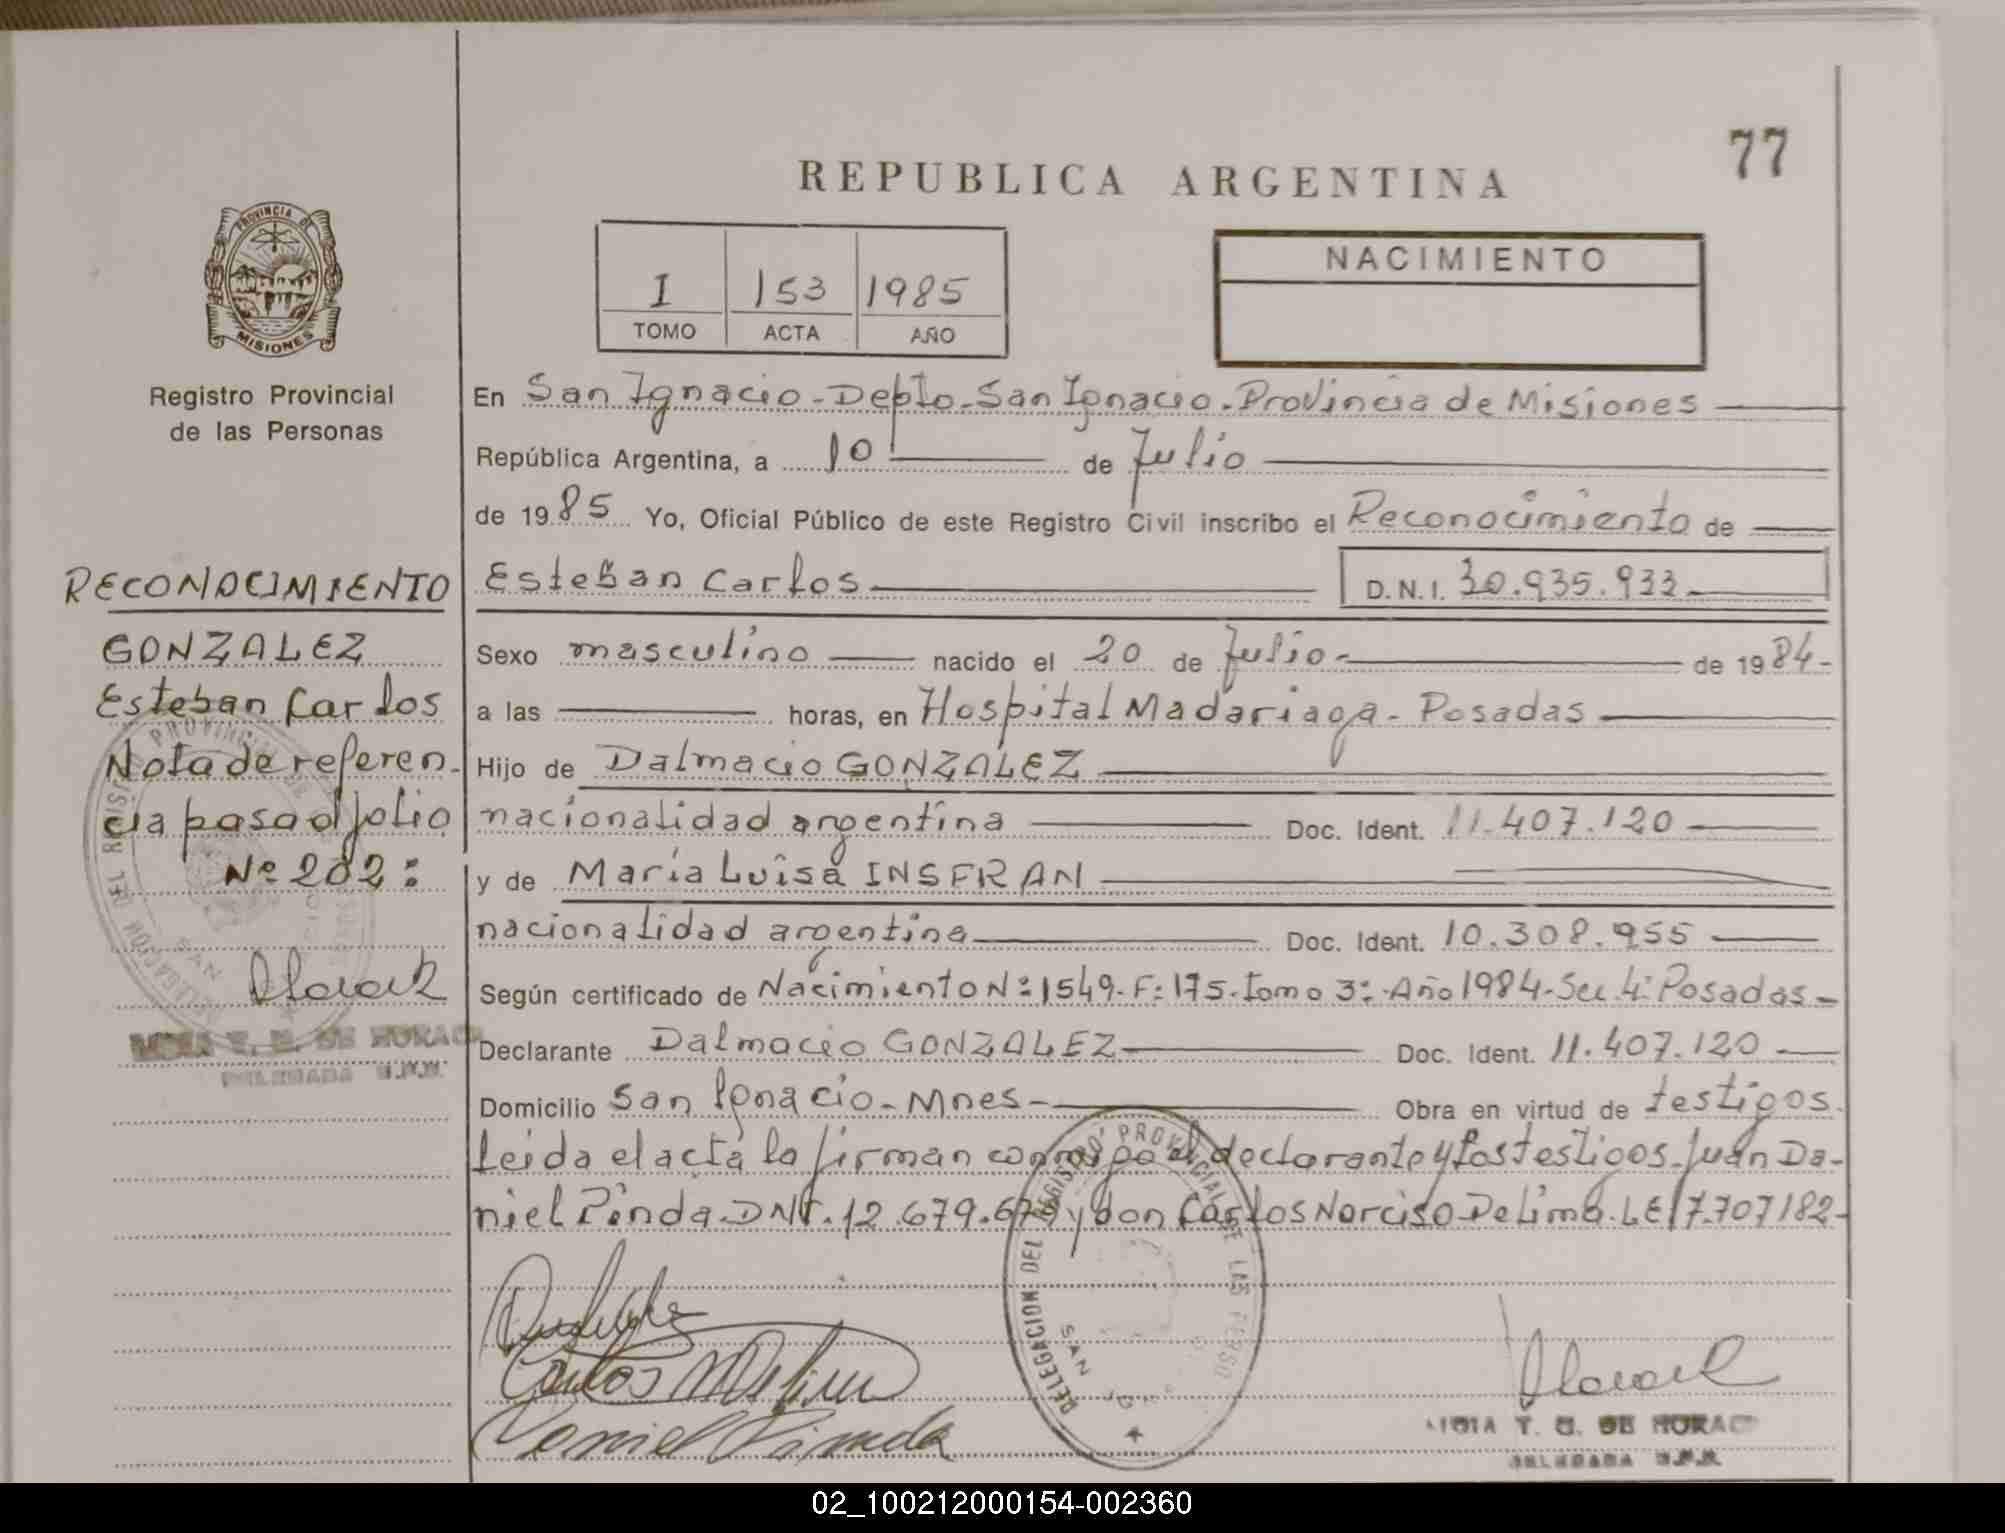 77
REPUBLICA ARGENTINA
PROVINCIA DE
MISIONES
Registro Provincial
de las Personas
I 153 1985
TOMO ACTA AÑO
NACIMIENTO
En San Ignacio - Depto. San Ignacio - Provincia de Misiones
República Argentina, a 10 de Julio
de 1985 Yo, Oficial Público de este Registro Civil inscribo el Reconocimiento de
Esteban Carlos D.N.I. 30.935.933
Sexo masculino nacido el 20 de Julio - de 1984-
a las horas, en Hospital Madariaga - Posadas
Hijo de Dalmacio GONZALEZ
nacionalidad argentina Doc. Ident. 11.407.120
y de María Luisa INSFRAN
nacionalidad argentina Doc. Ident. 10.308.955
Según certificado de Nacimiento Nº 1549 - F: 175 - Tomo 3º - Año 1984 - Sec. 4ª Posadas -
Declarante Dalmacio GONZALEZ Doc. Ident. 11.407.120
Domicilio San Ignacio - Mnes - Obra en virtud de testigos.
Leida el acta la firman conmigo el declarante y los testigos Juan Da-
niel Pinda DNI. 12.679.679 y don Carlos Narciso De Lima. LE 7.707182-
RECONOCIMIENTO
GONZALEZ
Esteban Carlos
Nota de referen-
cia pasa al folio
Nº 202:
DELEGACION DEL REGISTRO PROVINCIAL DE LAS PERSO
SAN
T. G. DE HORAC
DELEGADA
02_100212000154-002360